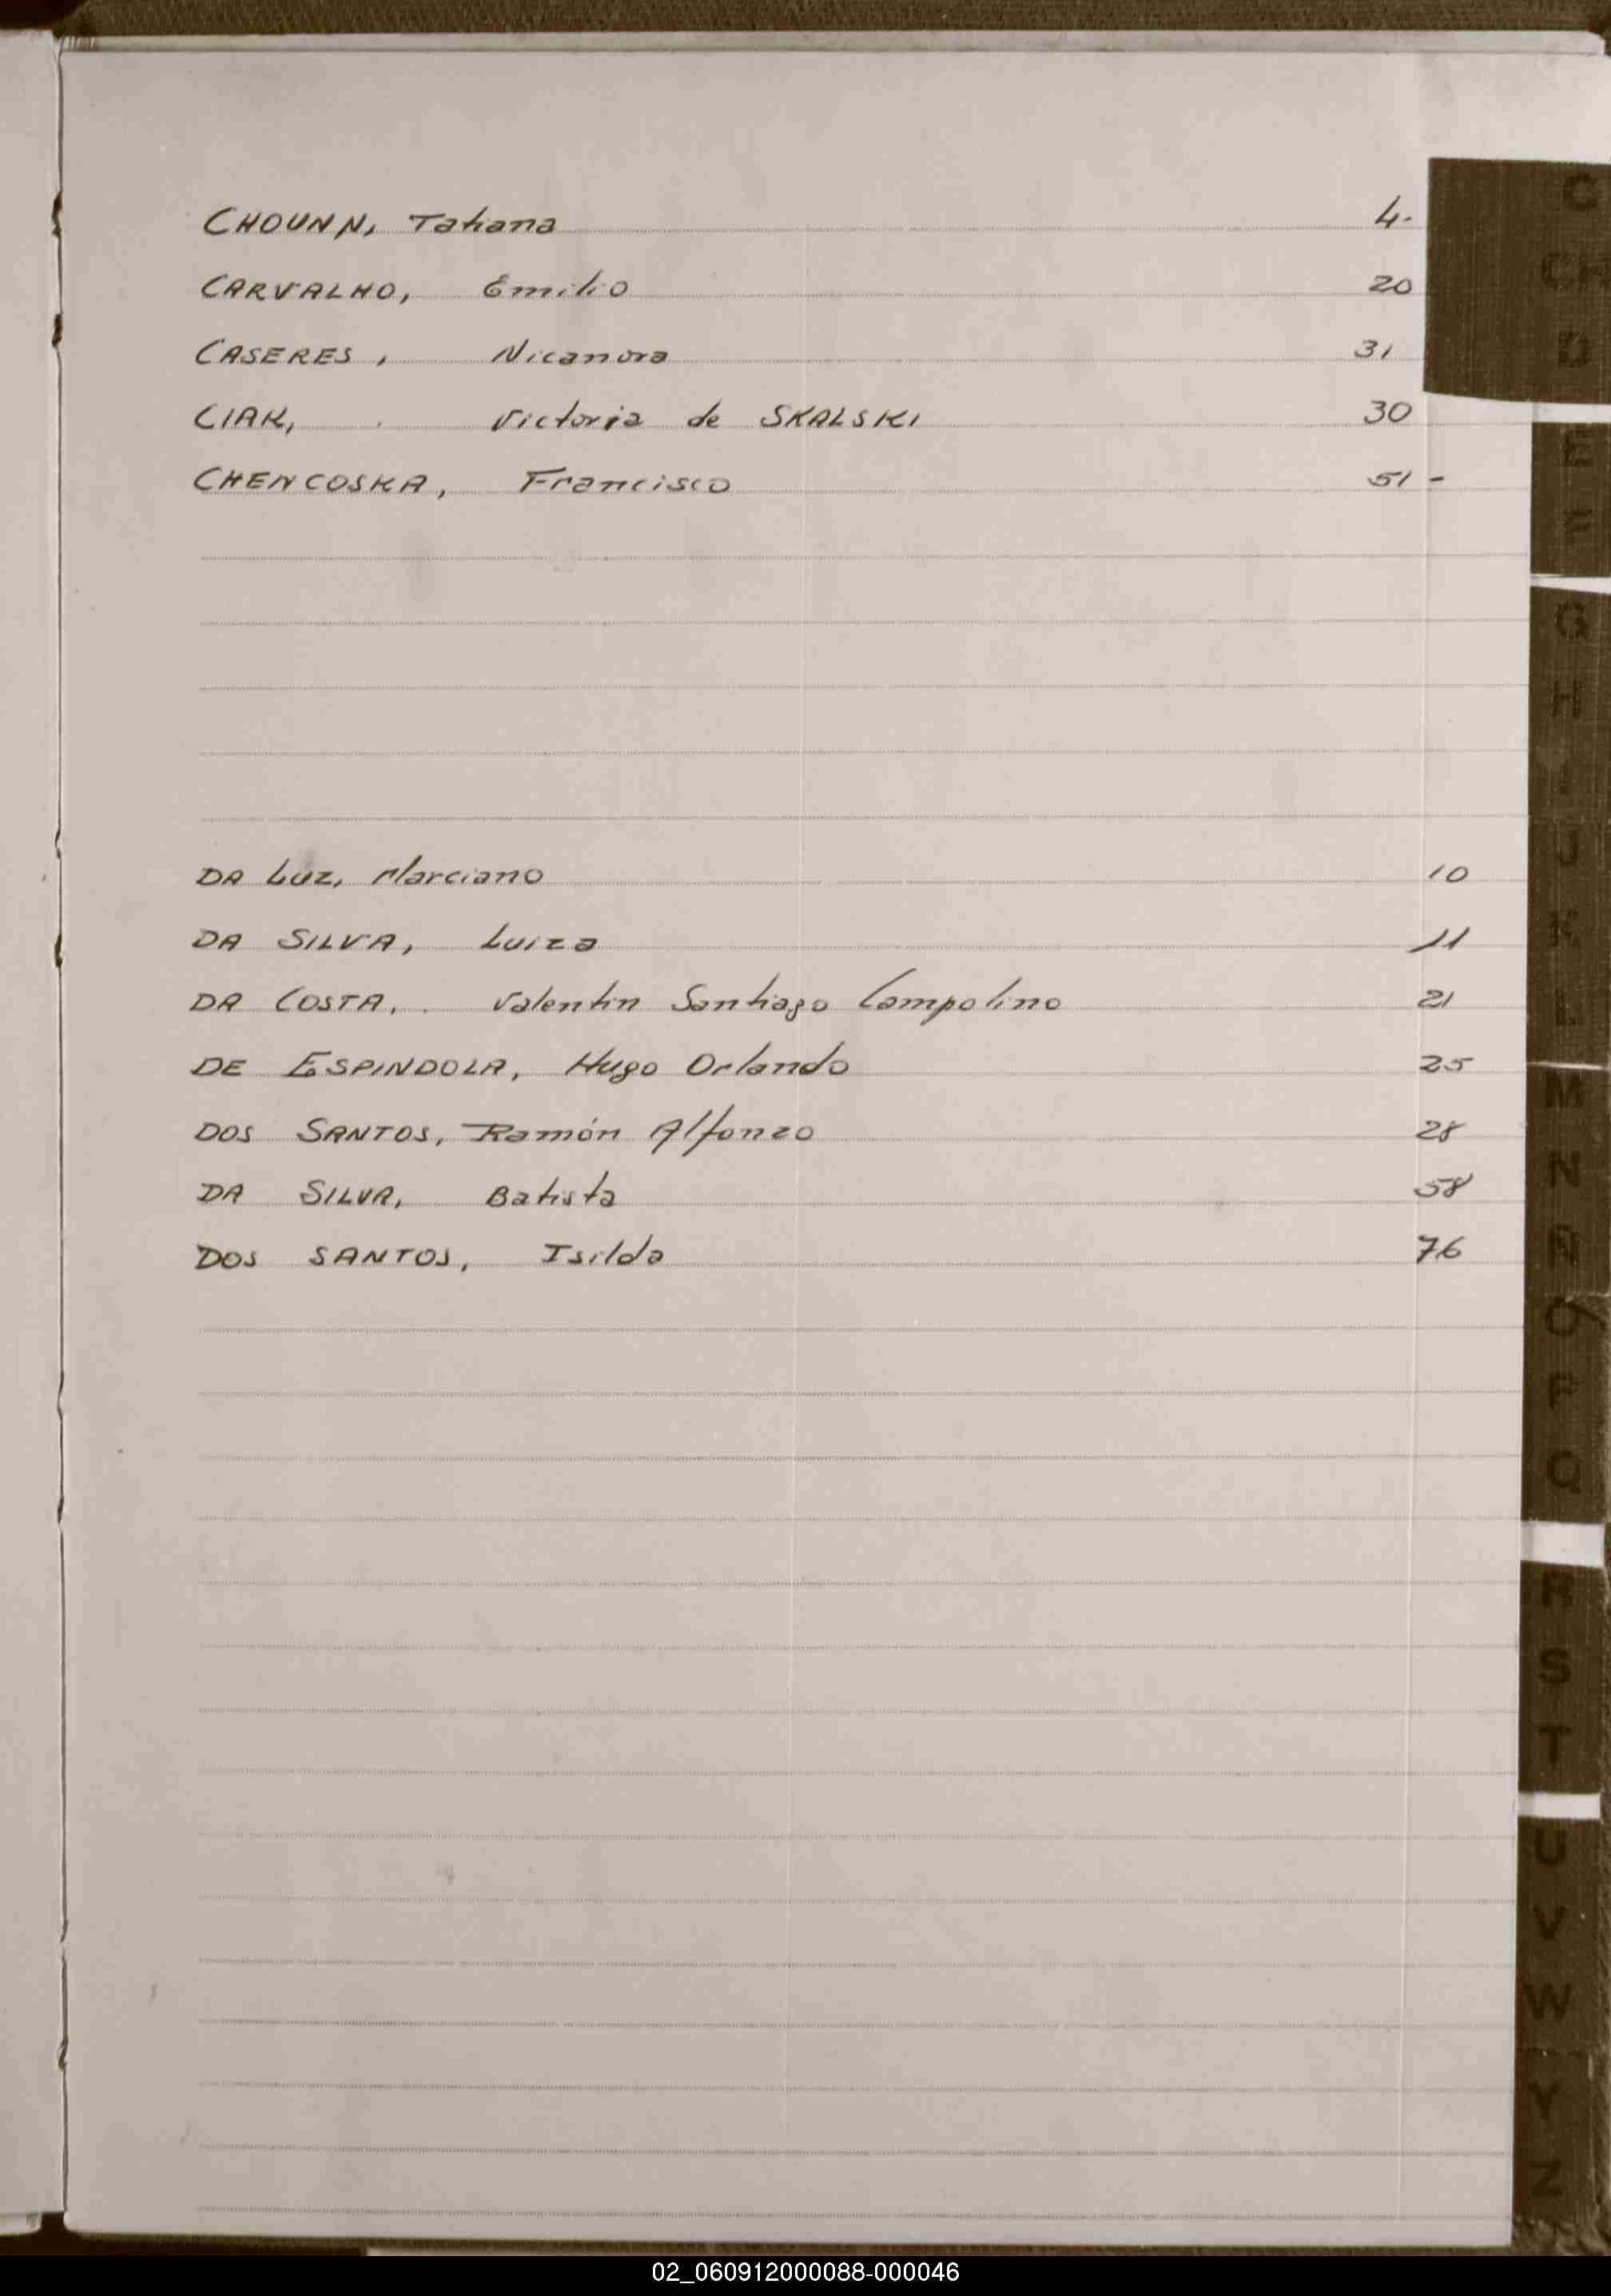 CHOUNN, Tatiana 4.
CARVALHO, Emilio 20
CASERES, Nicanora 31
CIAK, Victoria de SKALSKI 30
CHENCOSKA, Francisco 51 -
DA LUZ, Marciano 10
DA SILVA, Luiza 11
DA COSTA, Valentin Santiago Campolino 21
DE ESPINDOLA, Hugo Orlando 25
DOS SANTOS, Ramón Alfonzo 28
DA SILVA, Batista 58
DOS SANTOS, Isilda 76
C
CH
D
E
F
G
H
I
J
K
L
M
N
Ñ
O
P
Q
R
S
T
U
V
W
Y
Z
02_060912000088-000046